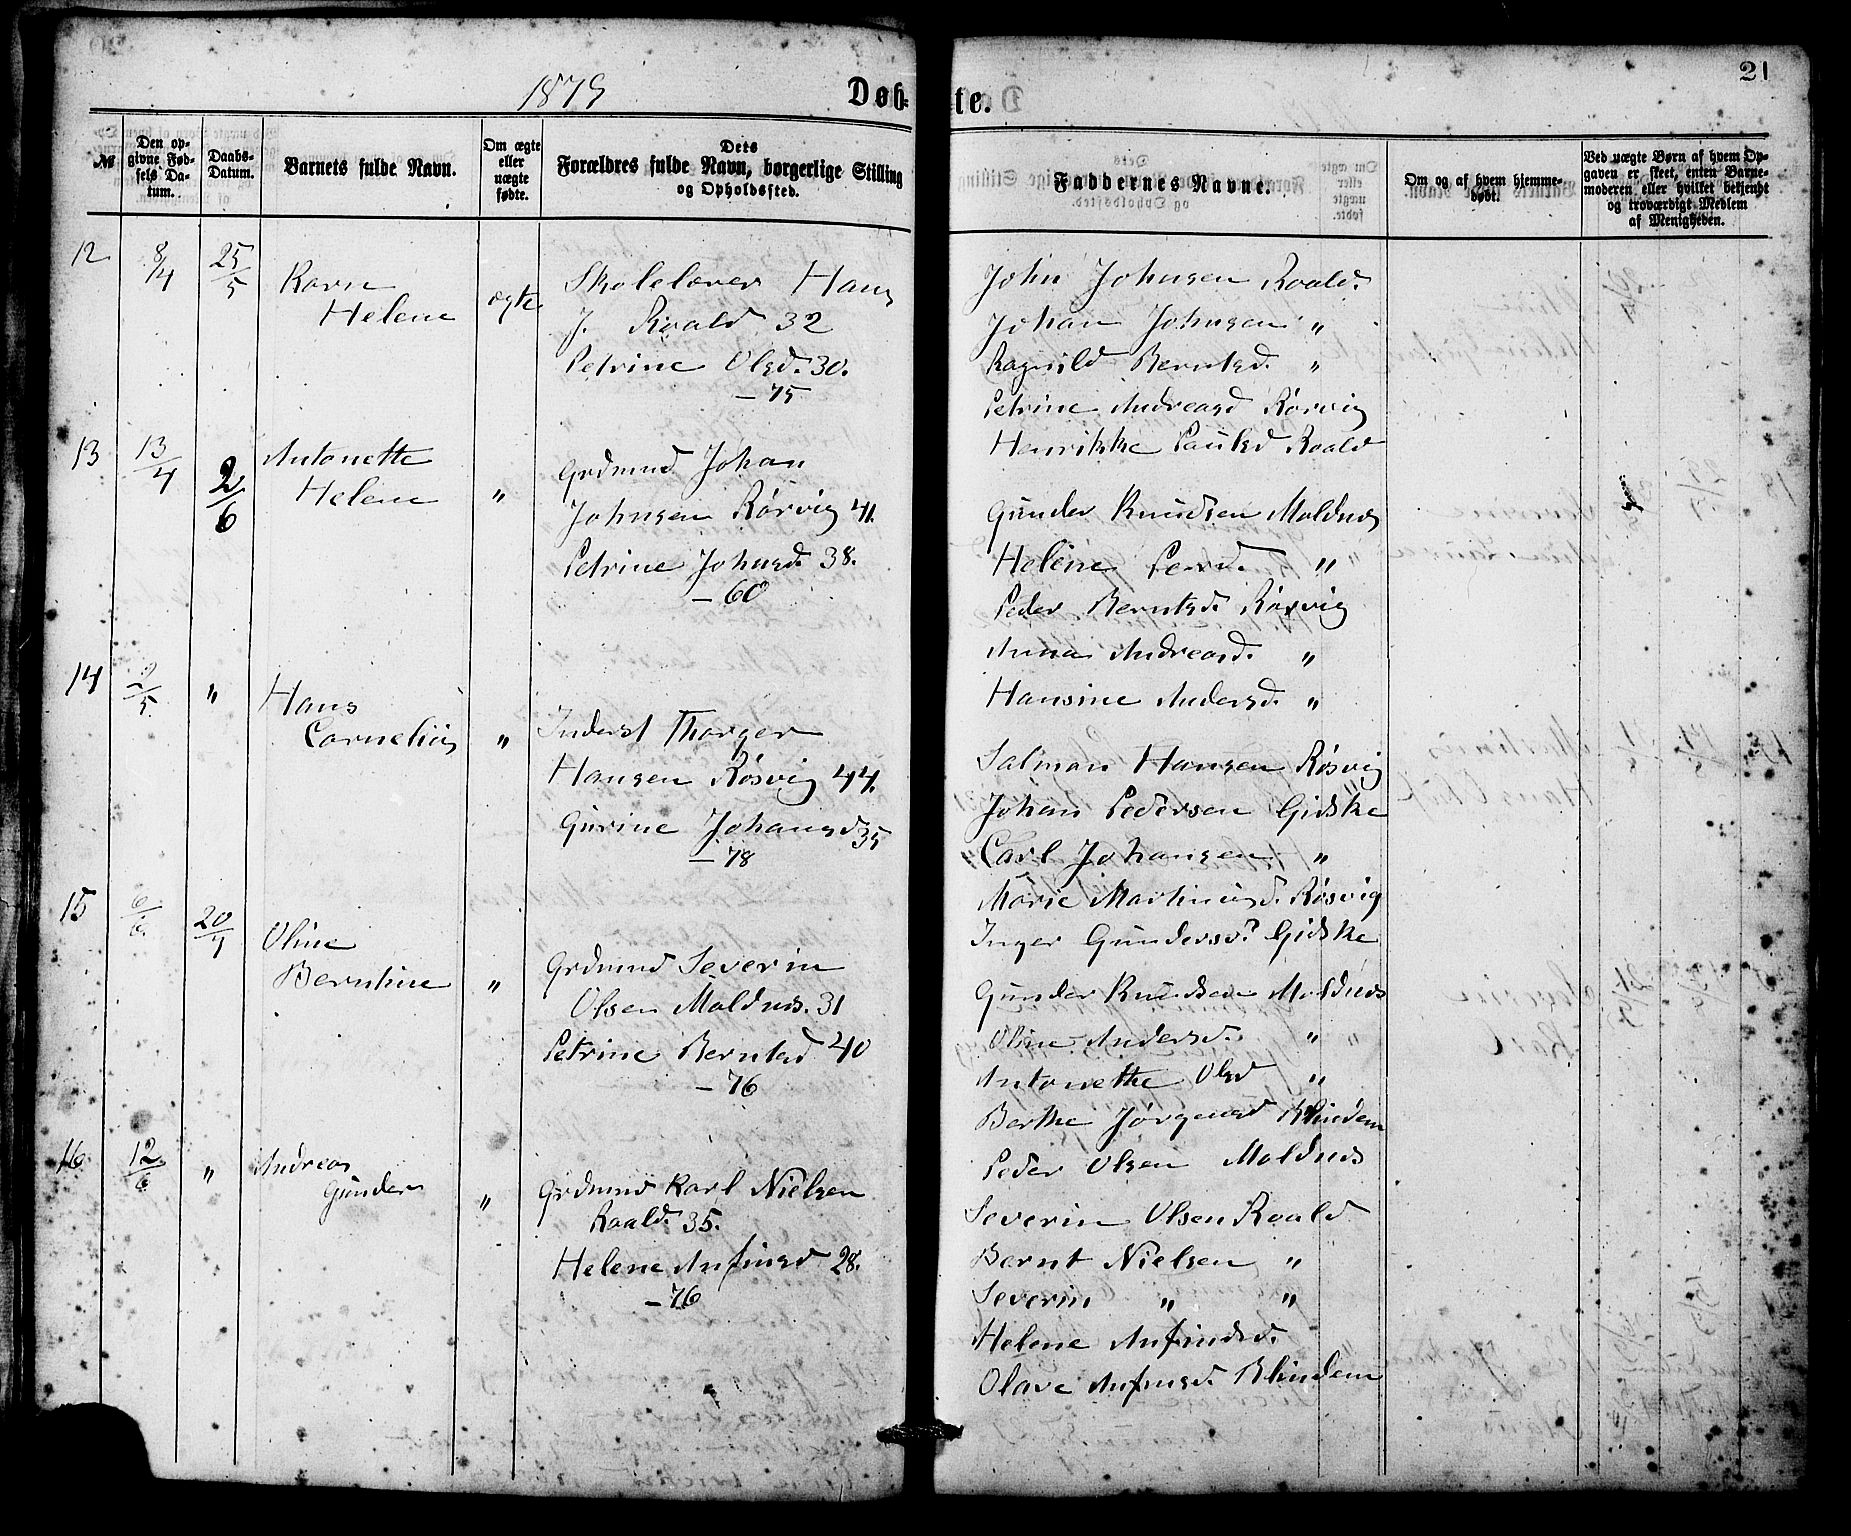 21
1879
Døb-
te.
№
Den op-
givne Fød-
sels Da-
tum.
Daabs-
Datum.
Barnets fulde Navn.
Om ægte
eller
uægte
fødte.
Dets
Forældres fulde Navn, borgerlige Stilling
og Opholdssted.
Faddernes Navne.
Om og af hvem hjemme-
døbt.
Ved uægte Børn af hvem Op-
gaven er skeet, enten Barne-
moderen eller hvilket bekjendt
og troværdigt Medlem
af Menigheden.
12
8/4
25/5
Karen
Helene
ægte
Skolelærer Hans
J. Roald 32
Petrine Olsd. 30.
– 75
John Johnsen Roald.
Johan Johnsen "
Ragnild Berntsd. "
Petrine Andreasd Rørvig
Henrikke Paulsd Roald
13
13/4
2/6
Antonette
Helene
"
Grdmnd Johan
Johnsen Rørvig 41.
Petrine Johnsd. 38.
– 60
Gunder Knudsen Moldnes
Helene Persd. "
Peder Berntsd. Rørvig
Anna Andreasd. "
Hansine Andersd. "
14
2/5
"
Hans
Cornelius
"
Inderst Thorger
Hansen Røsvig 44.
Gurine Johansd 35
– 78
Salman Hansen Røsvig
Johan Pedersen Gidske
Carl Johansen "
Marie Martinusd. Røsvig
Inger Gundersd. Gidske
15
6/6.
20/7
Oline
Berntine
"
Grdmnd Severin
Olsen Moldnes. 31
Petrine Berntsd 40
– 76
Gunder Knudsen Moldnes
Oline Andersd. "
Antonette Olsd "
Berthe Jørgensd Blindem
Peder Olsen Moldnes
16
12/6
"
Andreas
Gunder
"
Grdmnd Karl Nielsen
Roald. 35.
Helene Anfinsd 28.
– 76
Severin Olsen Roald
Bernt Nielsen "
Severin " "
Helene Anfindsd.
Olave Anfinsd. Blindem